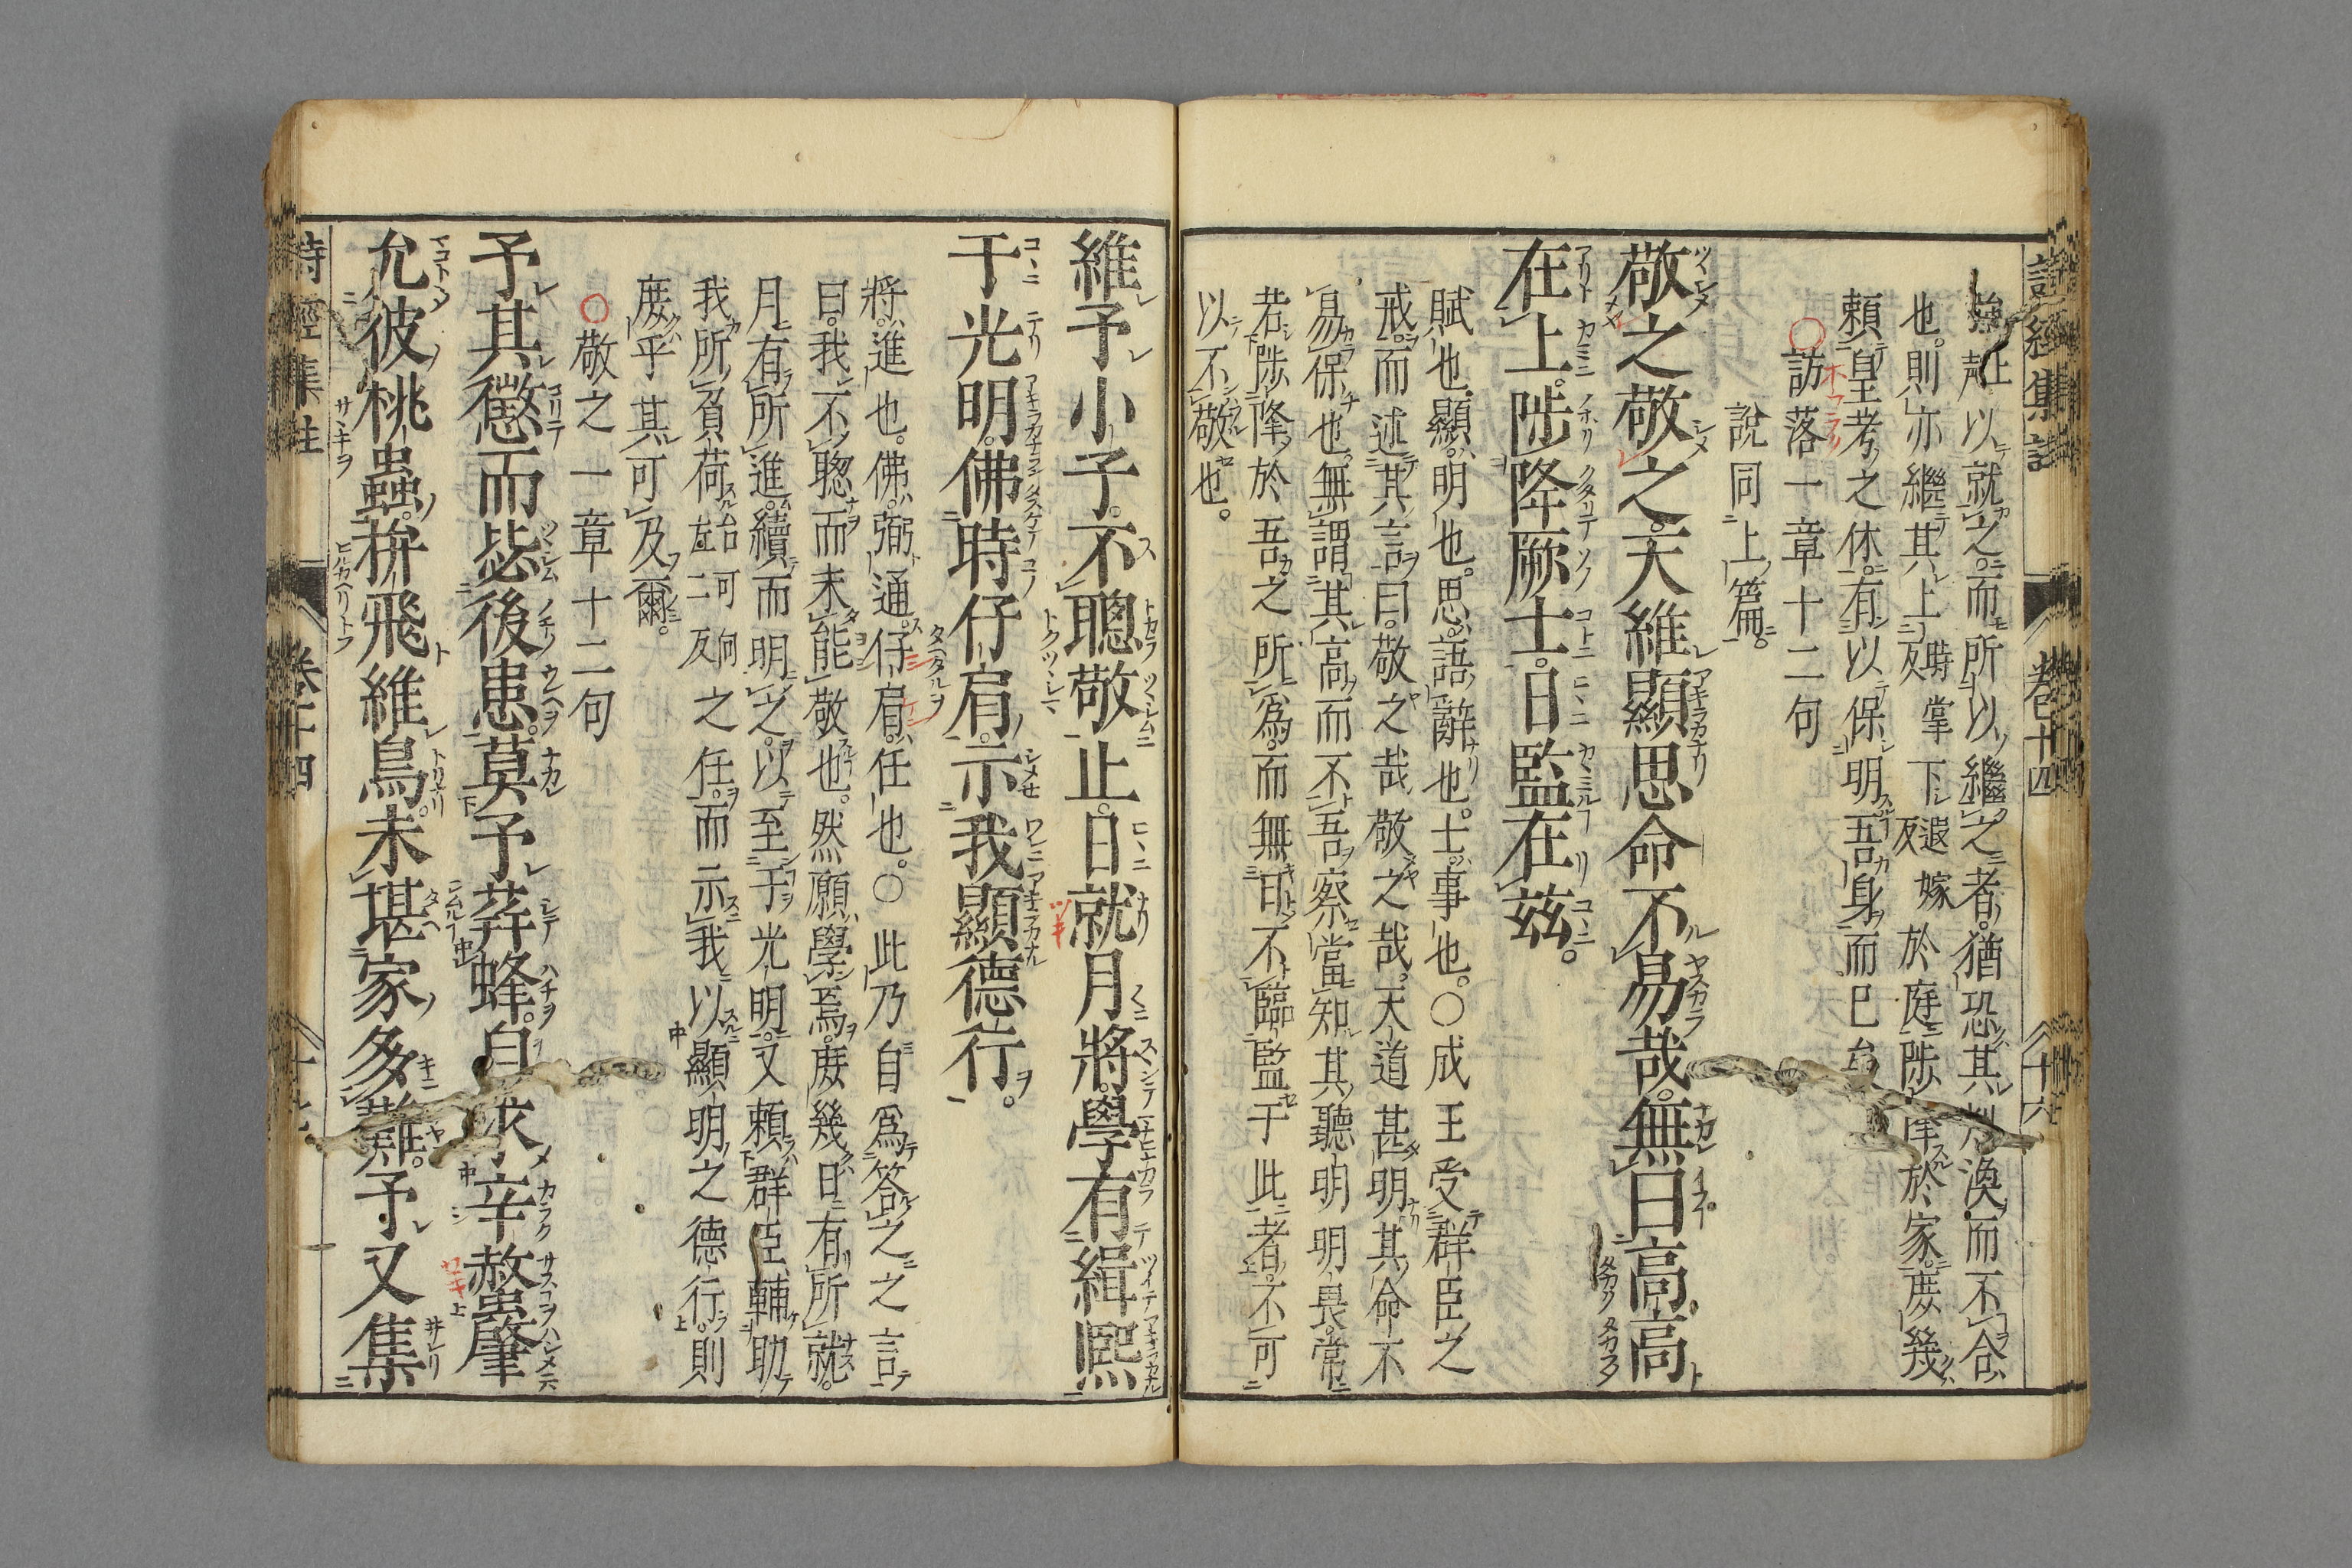 詩經集註 卷十四 十六
以就之。而所以繼之者。猶恐其渙而不合
也。則亦繼其上時掌反下遐嫁反於庭。陟降於家。庻幾
頼皇考之休。有以保明吾身而已
○訪落一章十二句
說同上篇。
敬之敬之。天維顯思命不易哉。無曰高高
在上。陟降厥士。日監在茲。
賦也。顯。明也。思。語辭也。士。事也。○成王受群臣之
戒。而述其言曰。敬之哉敬之哉。天道甚明其命不
易保也。無謂其高而不吾察當知其聽明明畏。常
若陟降於吾之所爲。而無日不臨監于此者。不可
以不敬也。
維予小子。不聰敬止。日就月將。學有緝熙
于光明。佛時仔肩。示我顯德行。
將。進也。佛。弼通。仔肩。任也。○此乃自爲答之之言
曰。我不聰而未能敬也。然願學焉。庻幾日有所就。
月有所進。續而明之。以至于光明。又頼群臣輔助
我所負荷之任。而示我以顯明之德行。則
庻乎其可及爾。
○敬之一章十二句
予其懲而毖後患。莫予荓蜂。自求辛螫肇
允彼桃蟲。拚飛維鳥。未堪家多難。予又集
詩經集註 卷十四